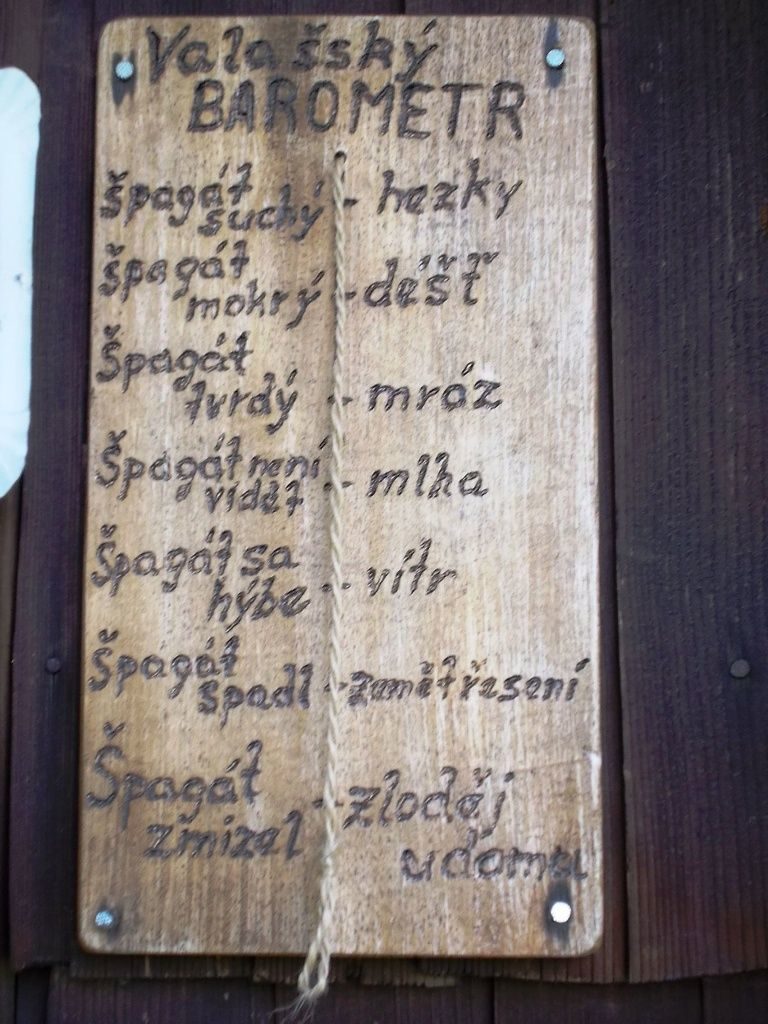 Valašský
BAROMETR
Špagát
suchý - hezky
špagát
mokrý - déšť
Špagát
tvrdý - mráz
Špagát není
vidět - mlha
Špagát sa
hýbe - vítr
Špagát
spadl - zemětřesení
Špagát
zmizel - zloděj
u domu